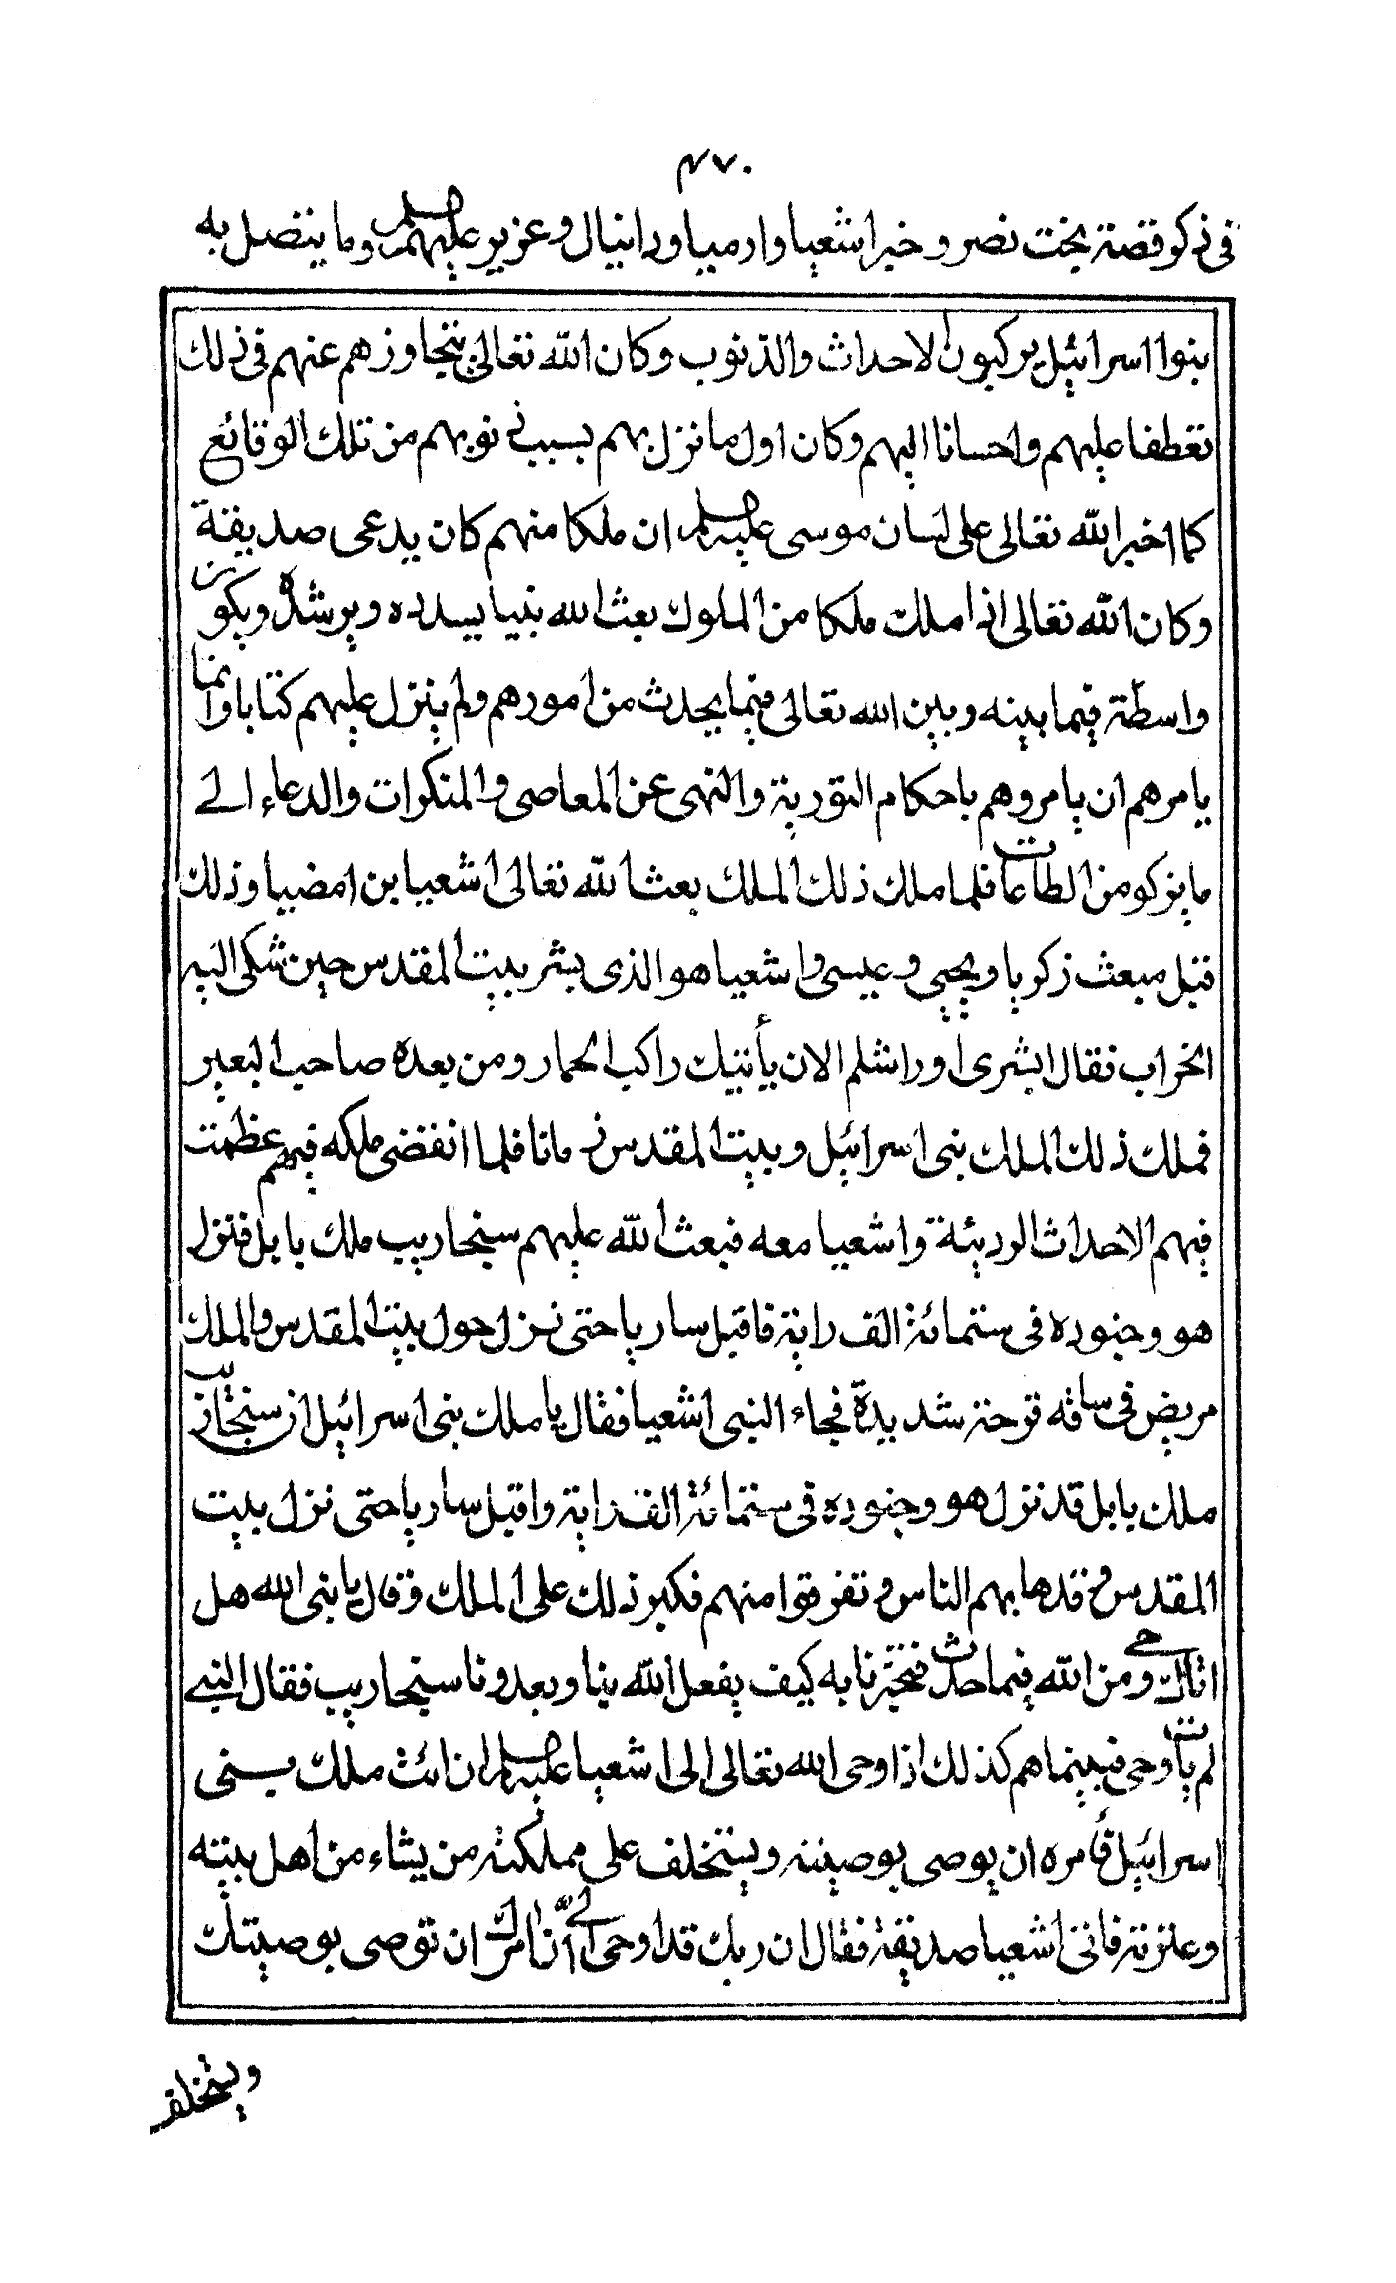 ٤٧٠
في ذكر قصة بخت نصر و خبر اشعيا وارميا ودانيال وعزير عليهم السلم وما يتصل به
بنوا اسرائيل يركبون الاحداث والذنوب وكان الله تعالى يتجاوزهم عنهم في ذلك
تعطفا عليهم واحسانا اليهم وكان اول ما نزل بهم بسبب ذنوبهم من تلك الوقائع
كما اخبر الله تعالى على لسان موسى عليه السلم ان ملكا منهم كان يدعى صديقة
وكان الله تعالى اذا ملك ملكا من الملوك بعث الله نبيا يسدده ويرشده ويكون
واسطة فيما بينه وبين الله تعالى فيما يحدث من امورهم ولم ينزل عليهم كتابا وانما
يامرهم ان يامروهم باحكام التورية والنهى عن المعاصى والمنكرات والدعاء الى
ما يزكو من الطاعات فلما ملك ذلك الملك بعث الله تعالى اشعيا بن امضيا وذلك
قبل مبعث زكريا ويحيى وعيسى واشعيا هو الذى بشر بيت المقدس حين شكى اليه
الخراب فقال ابشرى اوراشلم الان يأتيك راكب الحمار ومن بعده صاحب البعير
فملك ذلك الملك بنى اسرائيل وبيت المقدس زمانا فلما انقضى ملكه فيهم عظمت
فيهم الاحداث الرديئة واشعيا معه فبعث الله عليهم سنجاريب ملك بابل فنزل
هو وجنوده في ستمائة الف راية فاقبل ساريا حتى نزل حول بيت المقدس والملك
مريض في ساقه قرحة شديدة فجاء النبى اشعيا فقال يا ملك بنى اسرائيل ان سنجاريب
ملك بابل قد نزل هو وجنوده في ستمائة الف راية واقبل ساريا حتى نزل بيت
المقدس وقد هابهم الناس وتفرقوا منهم فكبر ذلك على الملك وقال يا نبى الله هل
اتاك وحى من الله فيما حدث فتخبرنا به كيف يفعل الله بنا وبعدونا سنجاريب فقال النبى
لم يات وحى فبينما هم كذلك اذ اوحى الله تعالى الى اشعيا عليه السلم ان ائت ملك بنى
اسرائيل فأمره ان يوصى بوصيته ويستخلف على مملكته من يشاء من اهل بيته
وعترته فاتى اشعيا صديقة فقال ان ربك قد اوحى الى ان امرك ان توصى بوصيتك
ويستخلف